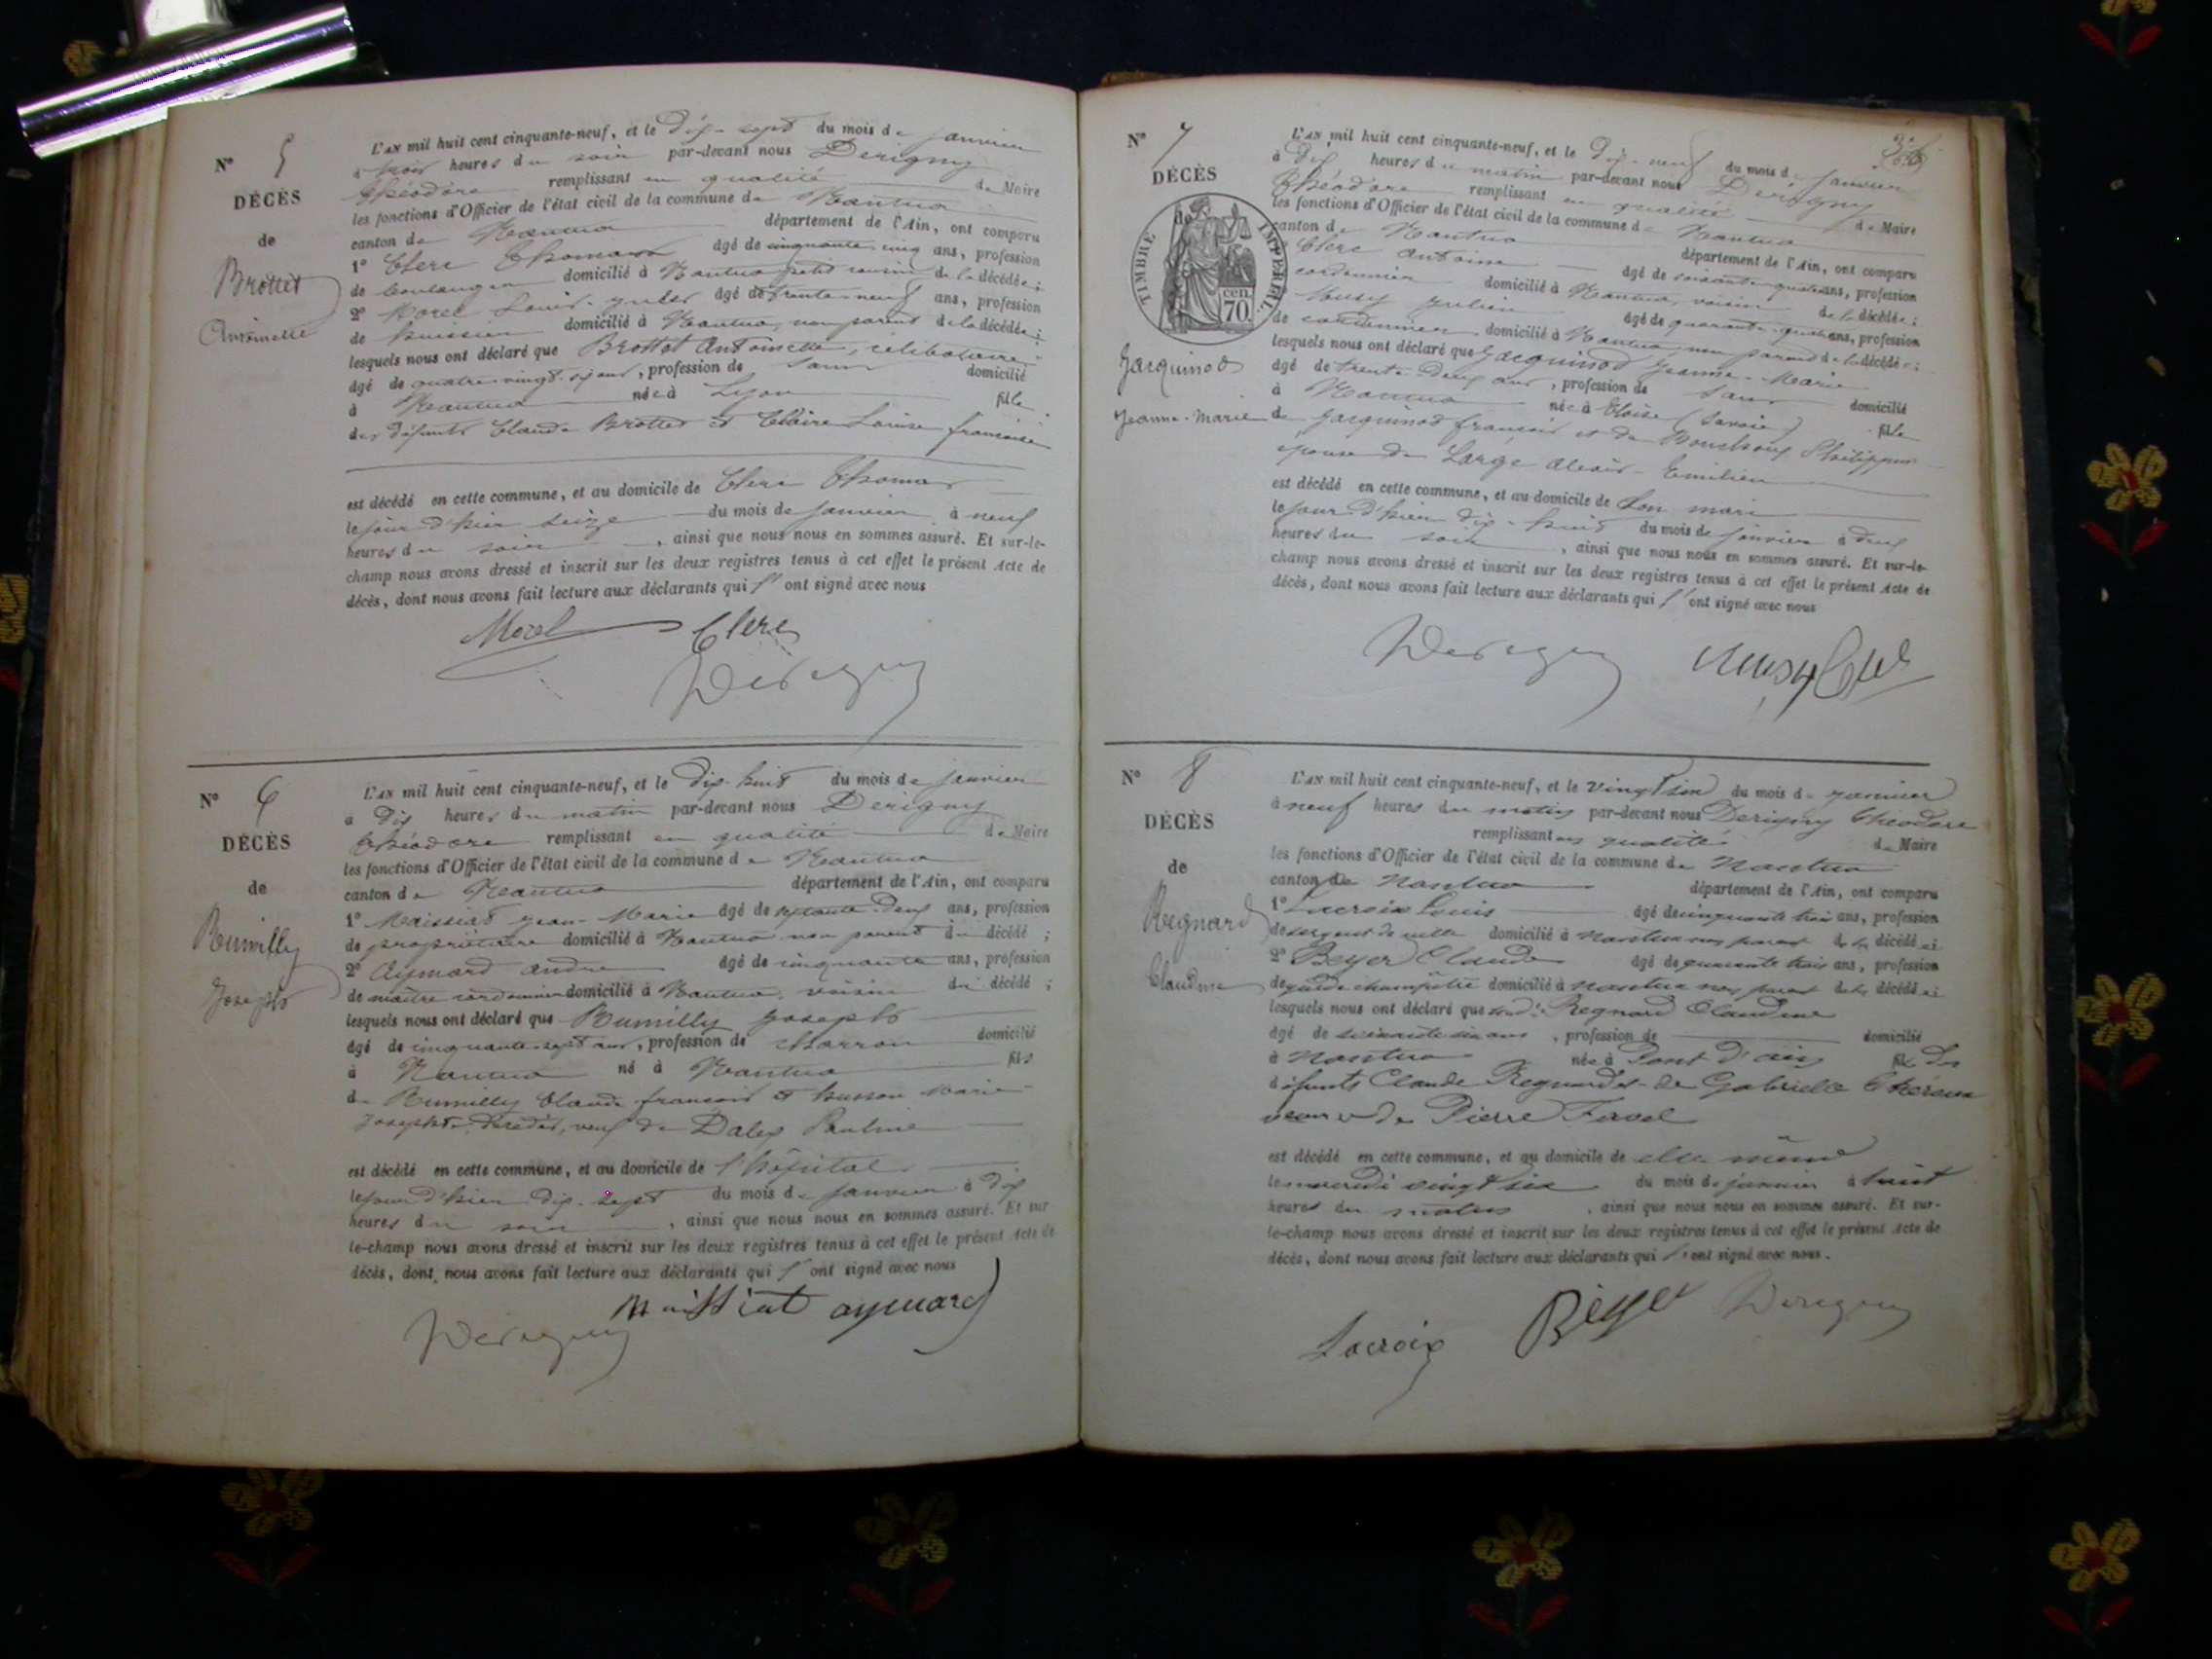 N° 5
DÉCÈS
de
Brottet
Antoinette
L'AN mil huit cent cinquante-neuf, et le dix-sept du mois de janvier
à trois heures du soir par-devant nous Derigny
Théodore remplissant en qualité de Maire
les fonctions d'Officier de l'état civil de la commune de Nantua
canton de Nantua département de l'Ain, ont comparu
1° Clerc Thomas âgé de cinquante cinq ans, profession
de boulanger domicilié à Nantua petit cousin de la décédée ;
2° Morel Louis-Jules âgé de trente-neuf ans, profession
de huissier domicilié à Nantua, non parent de la décédée ;
lesquels nous ont déclaré que Brottet Antoinette, célibataire
âgé de quatre-vingt ans, profession de sans domicilié
à Nantua née à Lyon fille
des défunts Claude Brottet et Claire Louise françoise
est décédé en cette commune, et au domicile de Clerc Thomas
le jour d'hier seize du mois de janvier à neuf
heures du soir, ainsi que nous nous en sommes assuré. Et sur-le-
champ nous avons dressé et inscrit sur les deux registres tenus à cet effet le présent Acte de
décès, dont nous avons fait lecture aux déclarants qui l'ont signé avec nous
Morel Clerc
Derigny
N° 6
DÉCÈS
de
Rumilly
Joseph
L'AN mil huit cent cinquante-neuf, et le dix-huit du mois de janvier
à dix heures du matin par-devant nous Derigny
Théodore remplissant en qualité de Maire
les fonctions d'Officier de l'état civil de la commune de Nantua
canton de Nantua département de l'Ain, ont comparu
1° Maissiat Jean-Marie âgé de septante-deux ans, profession
de propriétaire domicilié à Nantua non parent du décédé ;
2° Aymard andré âgé de cinquante ans, profession
de maître cordonnier domicilié à Nantua, voisin du décédé ;
lesquels nous ont déclaré que Rumilly Joseph
âgé de cinquante-sept ans, profession de charron domicilié
à Nantua né à Nantua fils
de Rumilly Claude françois et husson Marie
Josephte, veuf de Dalex Pauline
est décédé en cette commune, et au domicile de l'hôpital
le jour d'hier dix-sept du mois de janvier à dix
heures du soir, ainsi que nous nous en sommes assuré. Et sur
le-champ nous avons dressé et inscrit sur les deux registres tenus à cet effet le présent Acte de
décès, dont nous avons fait lecture aux déclarants qui l'ont signé avec nous
Maissiat aymard
Derigny
N° 7
DÉCÈS
TIMBRE IMPÉRIAL
70 cen.
Jacquinod
Jeanne-Marie
L'AN mil huit cent cinquante-neuf, et le dix-neuf du mois de janvier
à dix heures du matin par-devant nous Derigny
Théodore remplissant en qualité de Maire
les fonctions d'Officier de l'état civil de la commune de Nantua
canton de Nantua département de l'Ain, ont comparu
Clerc Antoine âgé de soixante-quatre ans, profession
cordonnier domicilié à Nantua, voisin de la décédée ;
Musy Julien âgé de quarante-quatre ans, profession
de cordonnier domicilié à Nantua, non parent de la décédée ;
lesquels nous ont déclaré que Jacquinod Jeanne-Marie
âgé de trente-deux ans, profession de sans domicilié
à Nantua née à Eloise (Savoie) fille
de Jacquinod françois et de Philippine
épouse de Large Emilien
est décédé en cette commune, et au domicile de son mari
le jour d'hier dix-huit du mois de janvier à deux
heures du soir, ainsi que nous nous en sommes assuré. Et sur-le-
champ nous avons dressé et inscrit sur les deux registres tenus à cet effet le présent Acte de
décès, dont nous avons fait lecture aux déclarants qui l'ont signé avec nous
Derigny Musy Clerc
N° 8
DÉCÈS
de
Regnard
Claudine
L'AN mil huit cent cinquante-neuf, et le vingt six du mois de janvier
à neuf heures du matin par-devant nous Derigny Théodore
remplissant en qualité de Maire
les fonctions d'Officier de l'état civil de la commune de Nantua
canton de Nantua département de l'Ain, ont comparu
1° Lacroix Louis âgé de cinquante trois ans, profession
de sergent de ville domicilié à Nantua non parent de la décédée ;
2° Beyer Claude âgé de quarante trois ans, profession
de garde champêtre domicilié à Nantua non parent de la décédée ;
lesquels nous ont déclaré que Regnard Claudine
âgé de soixante six ans, profession de domicilié
à Nantua née à Pont d'ain fille des
défunts Claude Regnard et de Gabrielle
veuve de Pierre Favel
est décédé en cette commune, et au domicile de elle même
le mercredi vingt six du mois de janvier à huit
heures du matin, ainsi que nous nous en sommes assuré. Et sur-
le-champ nous avons dressé et inscrit sur les deux registres tenus à cet effet le présent Acte de
décès, dont nous avons fait lecture aux déclarants qui l'ont signé avec nous.
Lacroix Beyer Derigny